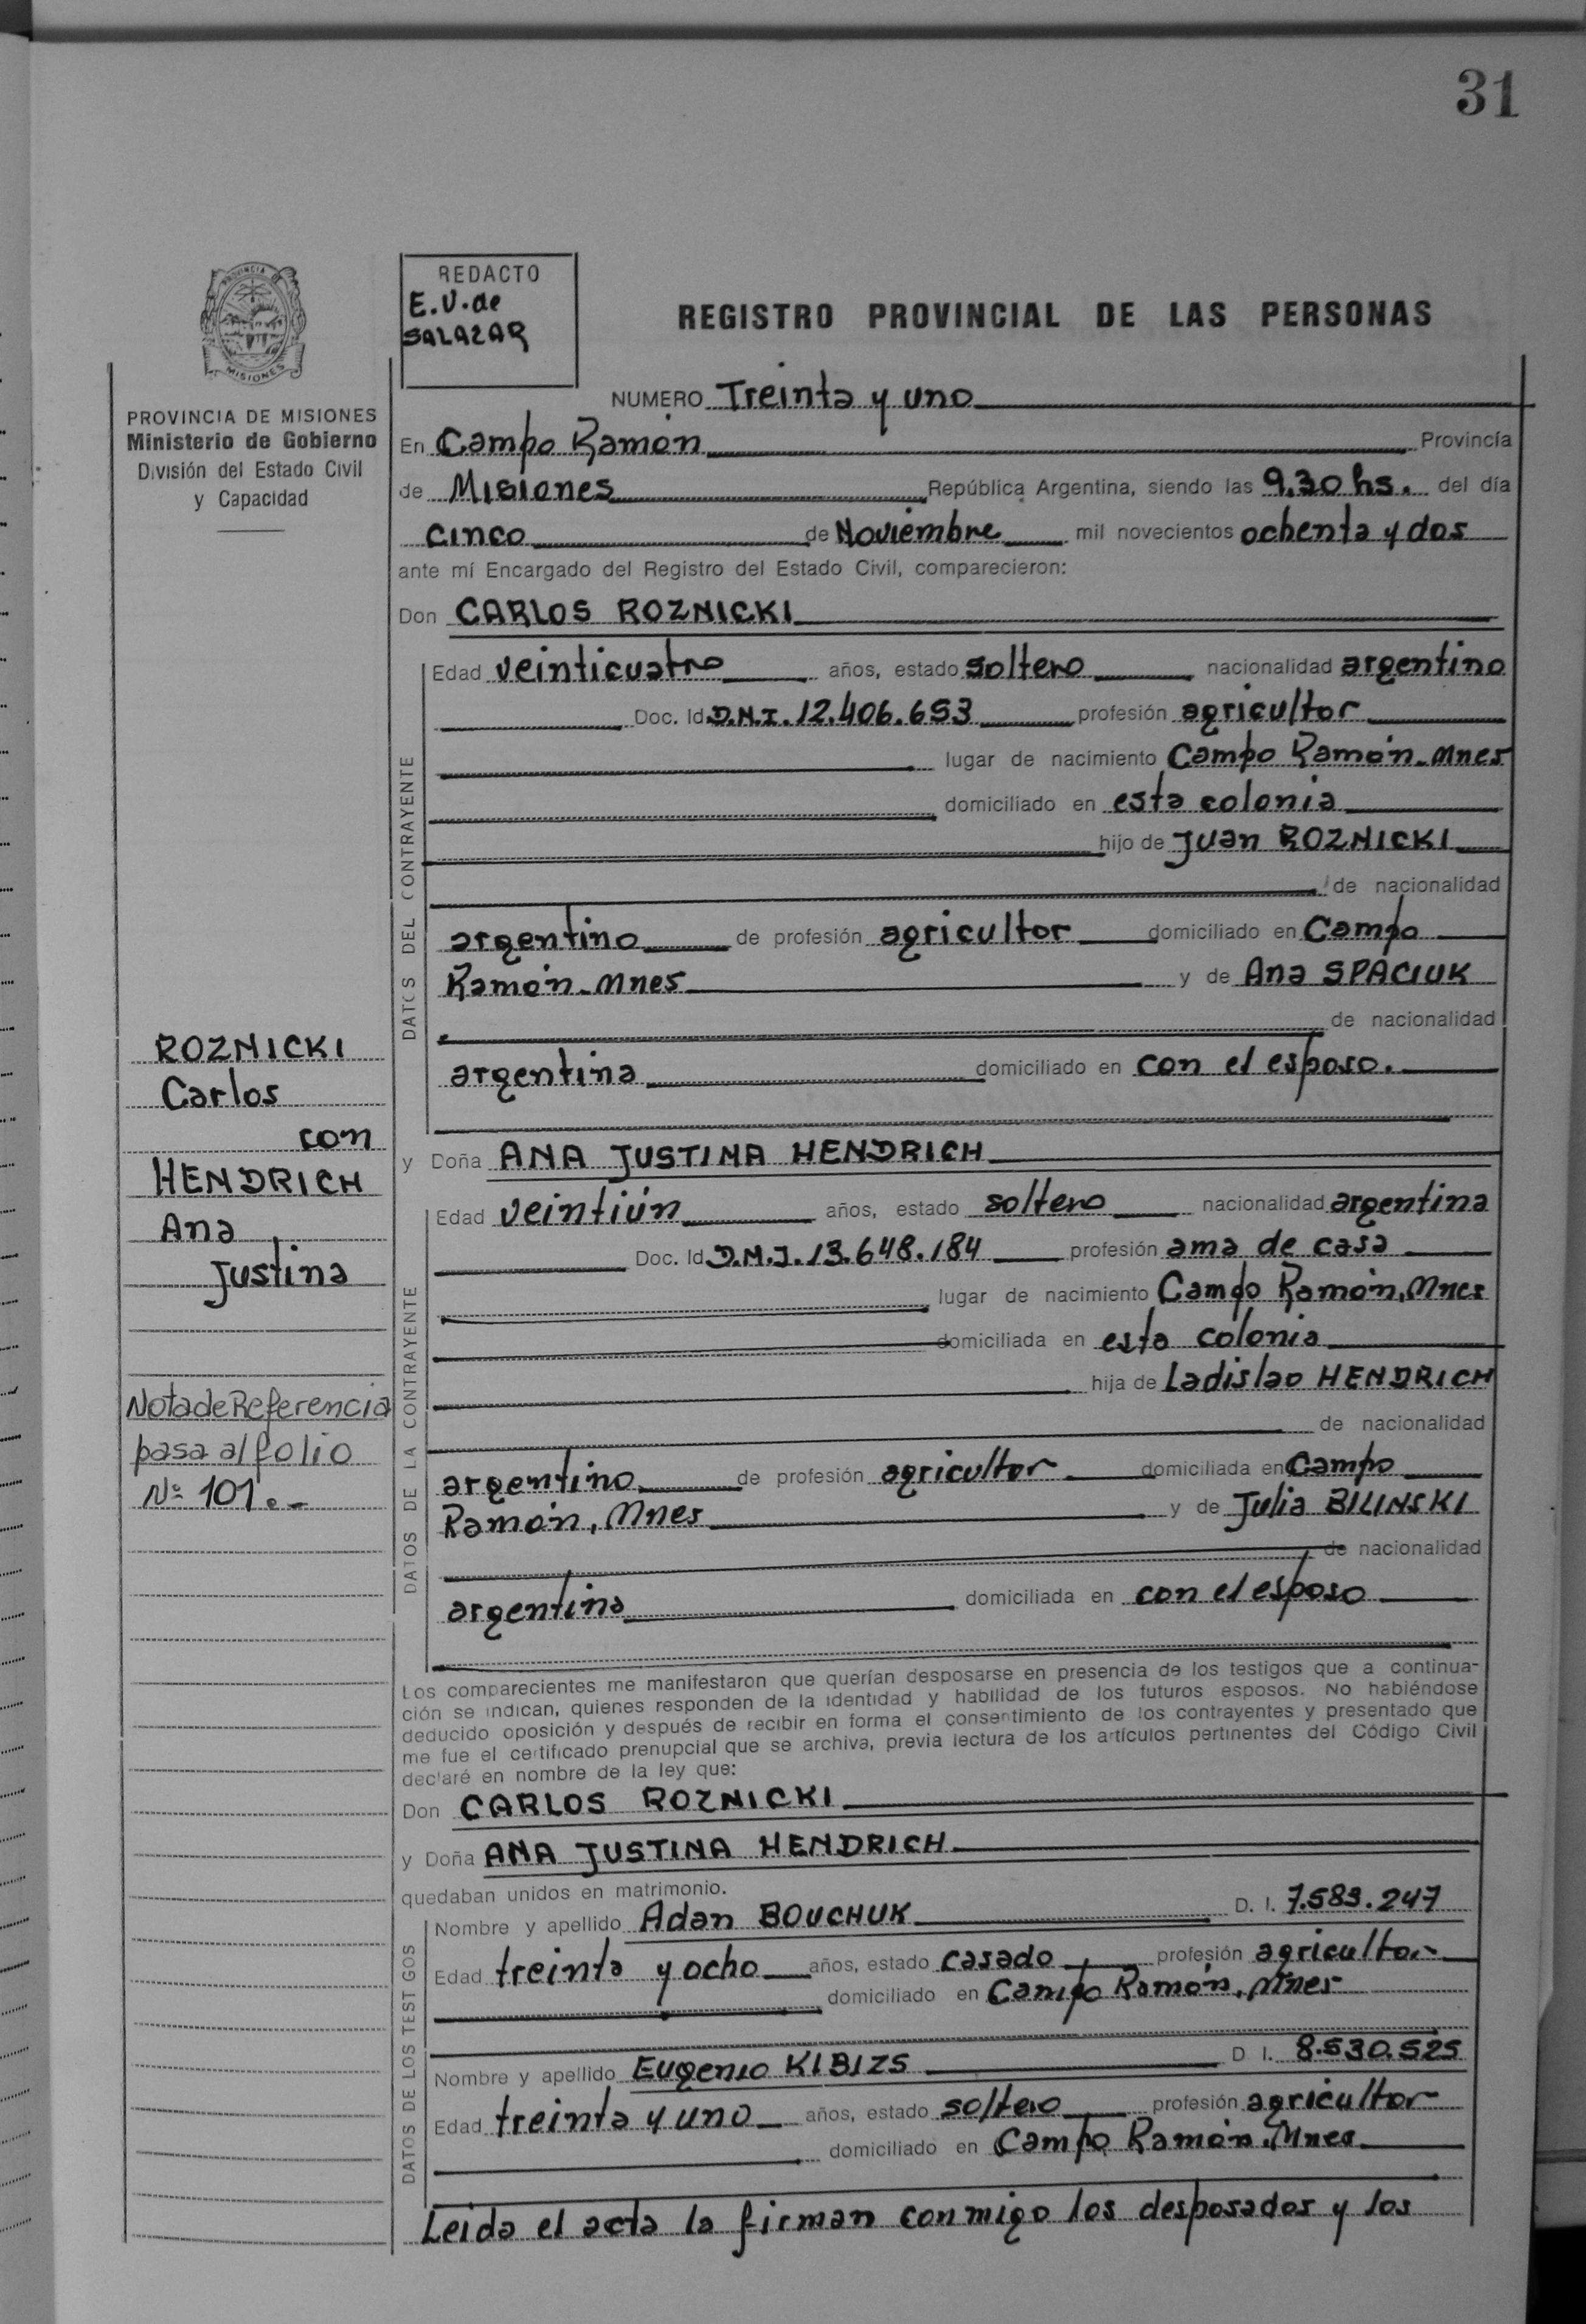 31
REDACTO
E.V. de
SALAZAR
REGISTRO PROVINCIAL DE LAS PERSONAS
PROVINCIA DE MISIONES
PROVINCIA DE MISIONES
Ministerio de Gobierno
División del Estado Civil
y Capacidad
NUMERO Treinta y uno
En Campo Ramón Provincia
de Misiones República Argentina, siendo las 9,30 hs. del día
cinco de Noviembre mil novecientos ochenta y dos
ante mí Encargado del Registro del Estado Civil, comparecieron:
Don CARLOS ROZNICKI
DATOS DEL CONTRAYENTE
Edad veinticuatro años, estado soltero nacionalidad argentino
Doc. Id D.N.I. 12.406.653 profesión agricultor
lugar de nacimiento Campo Ramón. Mnes
domiciliado en esta colonia
hijo de Juan ROZNICKI
de nacionalidad
argentino de profesión agricultor domiciliado en Campo
Ramón. Mnes y de Ana SPACIUK
de nacionalidad
argentina domiciliado en con el esposo.
ROZNICKI
Carlos
con
HENDRICH
Ana
Justina
Nota de Referencia
pasa al folio
Nº 101.-
y Doña ANA JUSTINA HENDRICH
DATOS DE LA CONTRAYENTE
Edad veintiún años, estado soltera nacionalidad argentina
Doc. Id D.N.I. 13.648.184 profesión ama de casa
lugar de nacimiento Campo Ramón, Mnes
domiciliada en esta colonia
hija de Ladislao HENDRICH
de nacionalidad
argentino de profesión agricultor domiciliada en Campo
Ramón, Mnes y de Julia BILINSKI
de nacionalidad
argentina domiciliada en con el esposo
Los comparecientes me manifestaron que querían desposarse en presencia de los testigos que a continua-
ción se indican, quienes responden de la identidad y habilidad de los futuros esposos. No habiéndose
deducido oposición y después de recibir en forma el consentimiento de los contrayentes y presentado que
me fue el certificado prenupcial que se archiva, previa lectura de los artículos pertinentes del Código Civil
declaré en nombre de la ley que:
Don CARLOS ROZNICKI
y Doña ANA JUSTINA HENDRICH
quedaban unidos en matrimonio.
DATOS DE LOS TESTIGOS
Nombre y apellido Adan BOUCHUK D. I. 7.583.247
Edad treinta y ocho años, estado casado profesión agricultor
domiciliado en Campo Ramón, Mnes
Nombre y apellido Eugenio KIBIZS D I. 8.530.525
Edad treinta y uno años, estado soltero profesión agricultor
domiciliado en Campo Ramón. Mnes
Leida el acta la firman conmigo los desposados y los